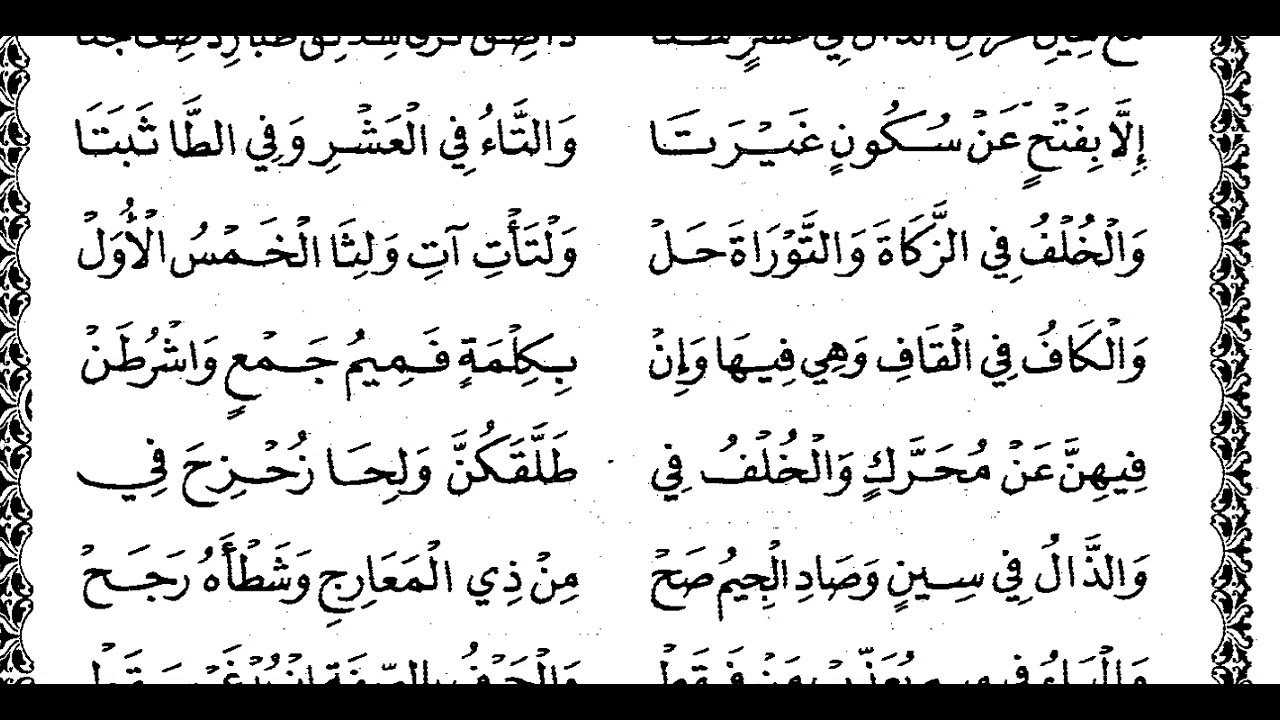 إِلَّا بِفَتْحٍ عَنْ سُكُونٍ غَيْرَ تَا وَالتَّاءُ فِي الْعَشْرِ وَفِي الطَّا ثَبَتَا
وَالْخُلْفُ فِي الزَّكَاةَ وَالتَّوْرَاةَ حَلْ وَلْتَأْتِ آتِ وَلِثَا الْخَمْسُ الْأُوَلْ
وَالْكَافُ فِي الْقَافِ وَهِي فِيهَا وَإِنْ بِكِلْمَةٍ فَمِيمُ جَمْعٍ وَاشْرُطَنْ
فِيهِنَّ عَنْ مُحَرَّكٍ وَالْخُلْفُ فِي طَلَّقَكُنَّ وَلِحَا زُحْزِحَ فِي
وَالذَّالُ فِي سِينٍ وَصَادِ الْجِيمُ صَحْ مِنْ ذِي الْمَعَارِجِ وَشَطْأَهُ رَجَحْ